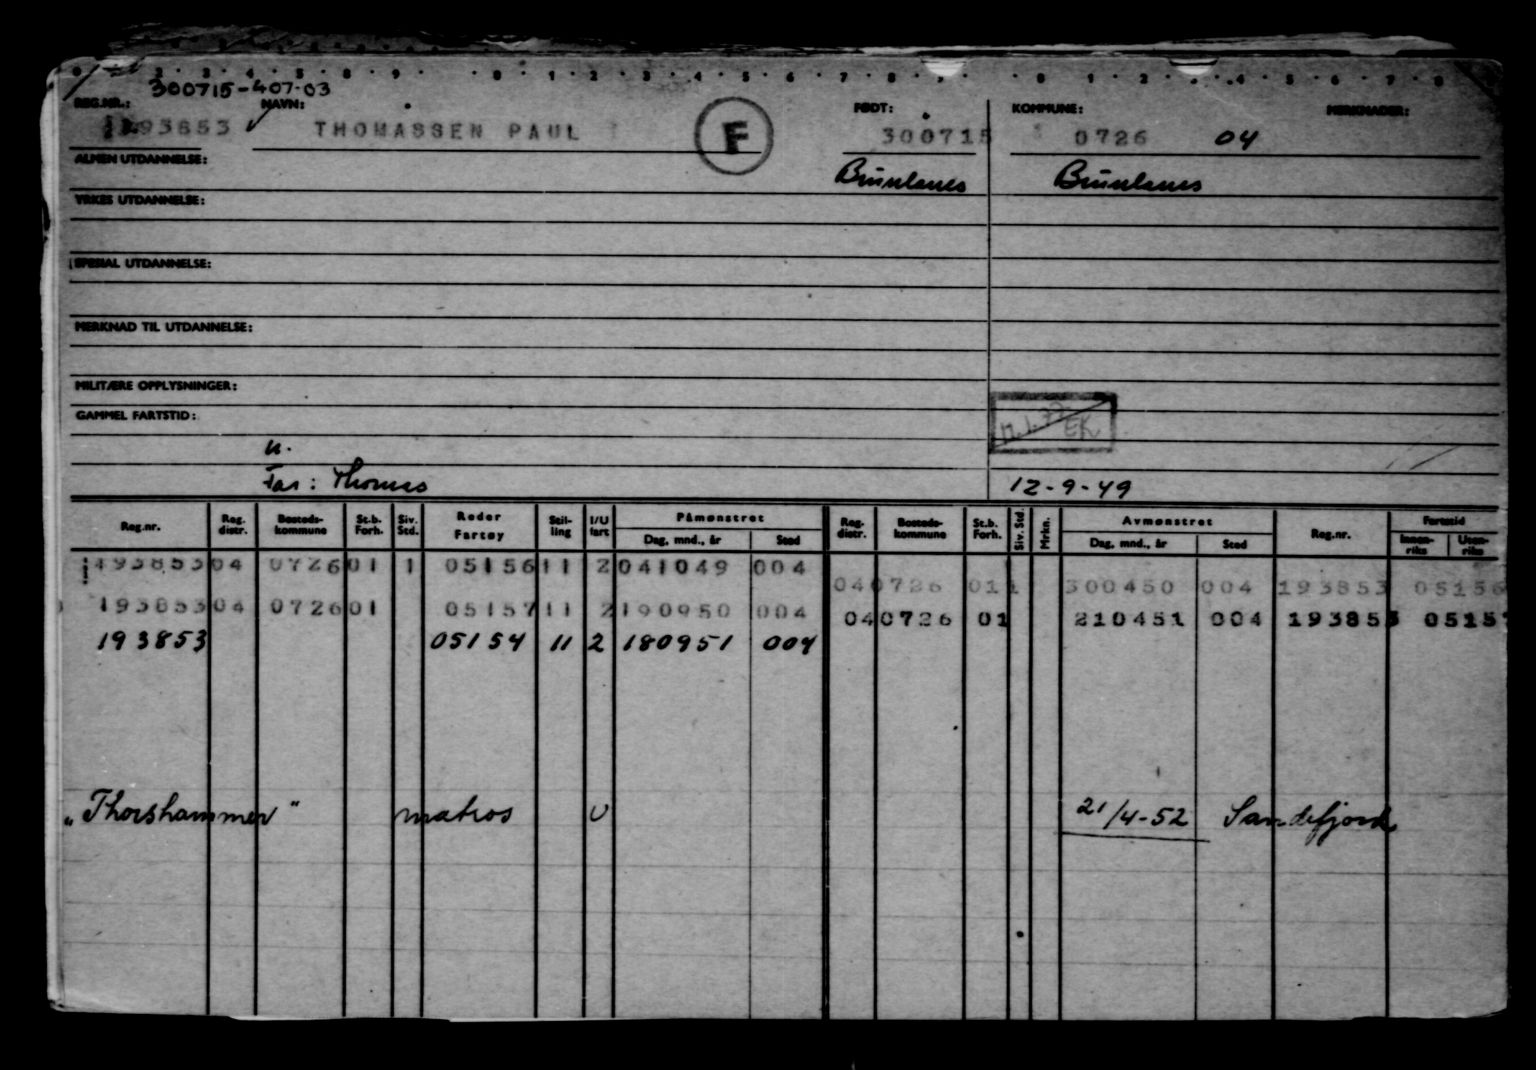 300715-407-03
REG.NR.: NAVN: FØDT: KOMMUNE: MERKNADER:
193853 THOMASSEN PAUL F 300715 0726 04
ALMEN UTDANNELSE: Brunlanes Brunlanes
YRKES UTDANNELSE:
SPESIAL UTDANNELSE:
MERKNAD TIL UTDANNELSE:
MILITÆRE OPPLYSNINGER:
GAMMEL FARTSTID:
12.1.77 EK
u.
Far: Thomas 12-9-49
Reg.nr. Reg. distr. Bosteds-kommune St.b. Forh. Siv. Std. Reder Fartøy Stil-ling I/U fart Påmønstret Dag, mnd., år Sted Reg. distr. Bosteds-kommune St.b. Forh. Siv. Std. Mrkn. Avmønstret Dag, mnd., år Sted Reg.nr. Fartstid Innen-riks Uten-riks
193853 04 0726 01 1 05156 11 2 041049 004
04 0726 01 1 300450 004 193853 05156
193853 04 0726 01 05157 11 2 190950 004
04 0726 01 210451 004 193853 05157
193853 05154 11 2 180951 004
"Thorshammer" matros U 21/4-52 Sandefjord